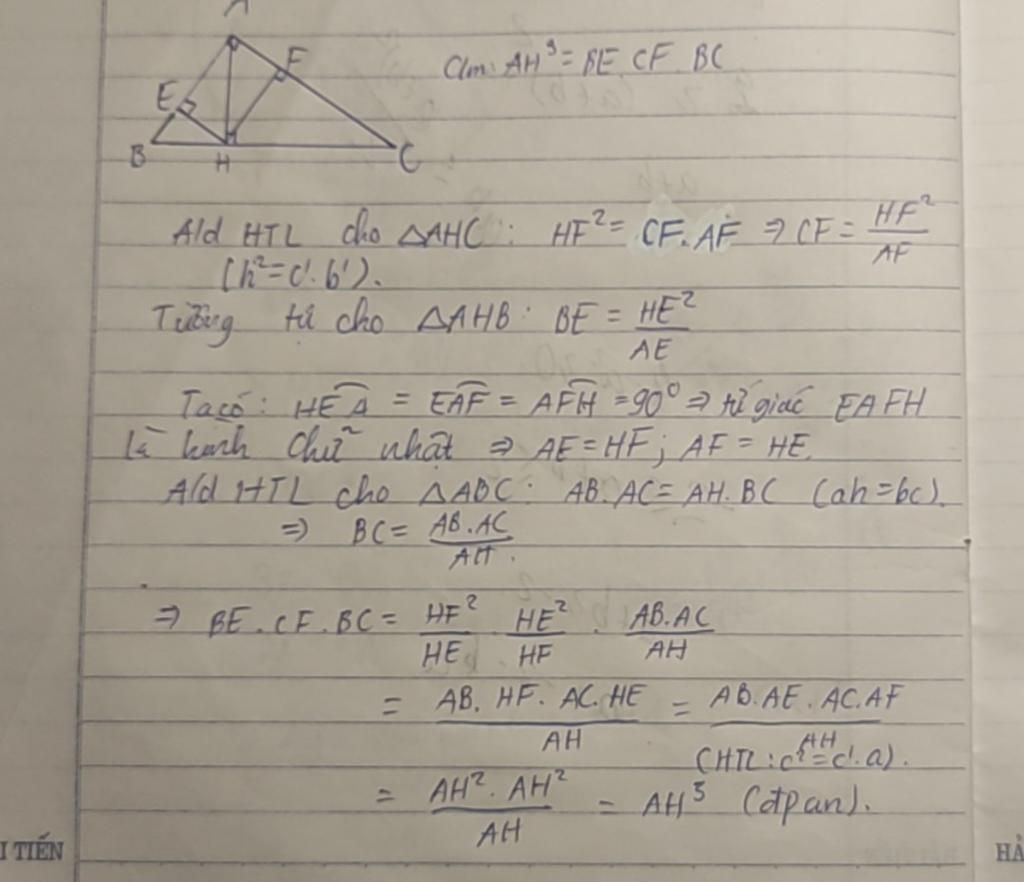 A
F
E
B
H
C
Clm: AH³ = BE CF BC
A/d HTL cho △AHC: HF² = CF.AF ⇒ CF = HF²/AF
(h² = c'.b').
Tường tứ cho △AHB: BE = HE²/AE
Ta có: HEA = EAF = AFH = 90⁰ ⇒ tứ giác EAFH
là hành chữ nhật ⇒ AE = HF; AF = HE.
A/d HTL cho △ABC: AB.AC = AH.BC (ah = bc).
⇒ BC = AB.AC/AH.
⇒ BE.CF.BC = HF²/HE . HE²/HF . AB.AC/AH
= AB.HF.AC.HE/AH = AB.AE.AC.AF/AH
(HTL: c² = c'.a).
= AH².AH²/AH = AH³ (đpan).
I TIẾN
HẢ